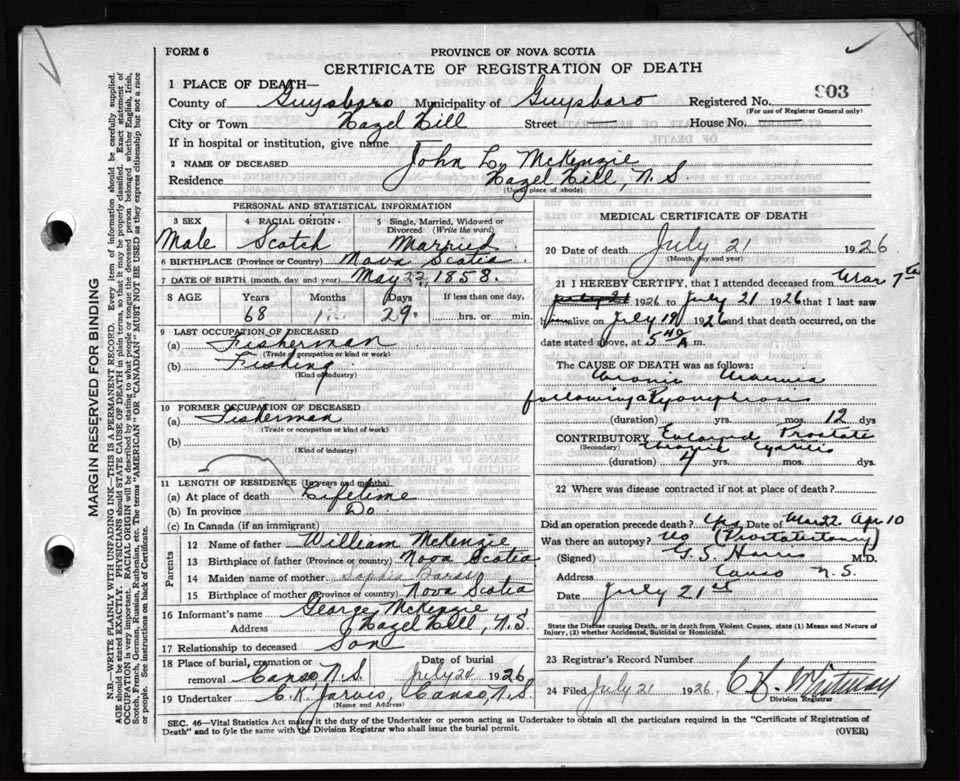 FORM 6
PROVINCE OF NOVA SCOTIA
CERTIFICATE OF REGISTRATION OF DEATH
903
1 PLACE OF DEATH—
County of Guysboro Municipality of Guysboro Registered No.
(For use of Registrar General only)
City or Town Hazel Hill Street House No.
If in hospital or institution, give name
2 NAME OF DECEASED John L. McKenzie
Residence Hazel Hill, N.S.
(Usual place of abode)
PERSONAL AND STATISTICAL INFORMATION
3 SEX Male
4 RACIAL ORIGIN Scotch
5 Single, Married, Widowed or Divorced (Write the word) Married
6 BIRTHPLACE (Province or Country) Nova Scotia
7 DATE OF BIRTH (month, day and year) May 22, 1858.
8 AGE Years Months Days If less than one day,
68 1 29. hrs. or min.
9 LAST OCCUPATION OF DECEASED
(a) Fisherman
(Trade or occupation or kind or work)
(b) Fishing
(Kind of industry)
10 FORMER OCCUPATION OF DECEASED
(a) Fisherman
(Trade or occupation or kind of work)
(b)
(Kind of industry)
11 LENGTH OF RESIDENCE (In years and months)
(a) At place of death Lifetime
(b) In province Do.
(c) In Canada (if an immigrant)
Parents
12 Name of father William McKenzie
13 Birthplace of father (Province or country) Nova Scotia
14 Maiden name of mother Sophia
15 Birthplace of mother (Province or country) Nova Scotia
16 Informant's name George McKenzie
Address Hazel Hill, N.S
17 Relationship to deceased Son
18 Place of burial, cremation or removal Canso, N.S. Date of burial July 24 1926
19 Undertaker C.K. Jarvis, Canso, N.S.
(Name and Address)
MEDICAL CERTIFICATE OF DEATH
20 Date of death July 21 1926
(Month, day and year)
21 I HEREBY CERTIFY, that I attended deceased from Mar 7th
July 21 1926 to July 21 1926 that I last saw
h im alive on July 19 1926 and that death occurred, on the
date stated above, at 5 40 A m.
The CAUSE OF DEATH was as follows:
Chronic Uraemia
following a Pyonephrosis
(duration) yrs. mos. 12 dys.
CONTRIBUTORY Enlarged Prostate
(Secondary)
(duration) 4 yrs. mos. dys.
22 Where was disease contracted if not at place of death?
Did an operation precede death? Yes Date of Mar 22 Apr 10
Was there an autopsy? No (Prostatectomy)
(Signed) G. S. M.D.
Address Canso N.S.
Date July 21st
State the Disease causing Death, or in death from Violent Causes, state (1) Means and Nature of Injury, (2) whether Accidental, Suicidal or Homicidal.
23 Registrar's Record Number
24 Filed July 21 1926. C K. Whitman
Division Registrar
SEC. 46—Vital Statistics Act makes it the duty of the Undertaker or person acting as Undertaker to obtain all the particulars required in the "Certificate of Registration of
Death" and to fyle the same with the Division Registrar who shall issue the burial permit.
(OVER)
MARGIN RESERVED FOR BINDING
N.B.—WRITE PLAINLY WITH UNFADING INK—THIS IS A PERMANENT RECORD. Every item of information should be carefully supplied.
AGE should be stated EXACTLY. PHYSICIANS should STATE CAUSE OF DEATH in plain terms, so that it may be properly classified. Exact statement of
OCCUPATION is very important. RACIAL ORIGIN will be described by stating to what people or tongue the deceased person belonged whether English, Irish,
Scotch, French, German, Russian, Ruthenian, etc. The terms "AMERICAN" OR "CANADIAN" MUST NOT BE USED as they express citizenship but not a race
or people. See instructions on back of Certificate.